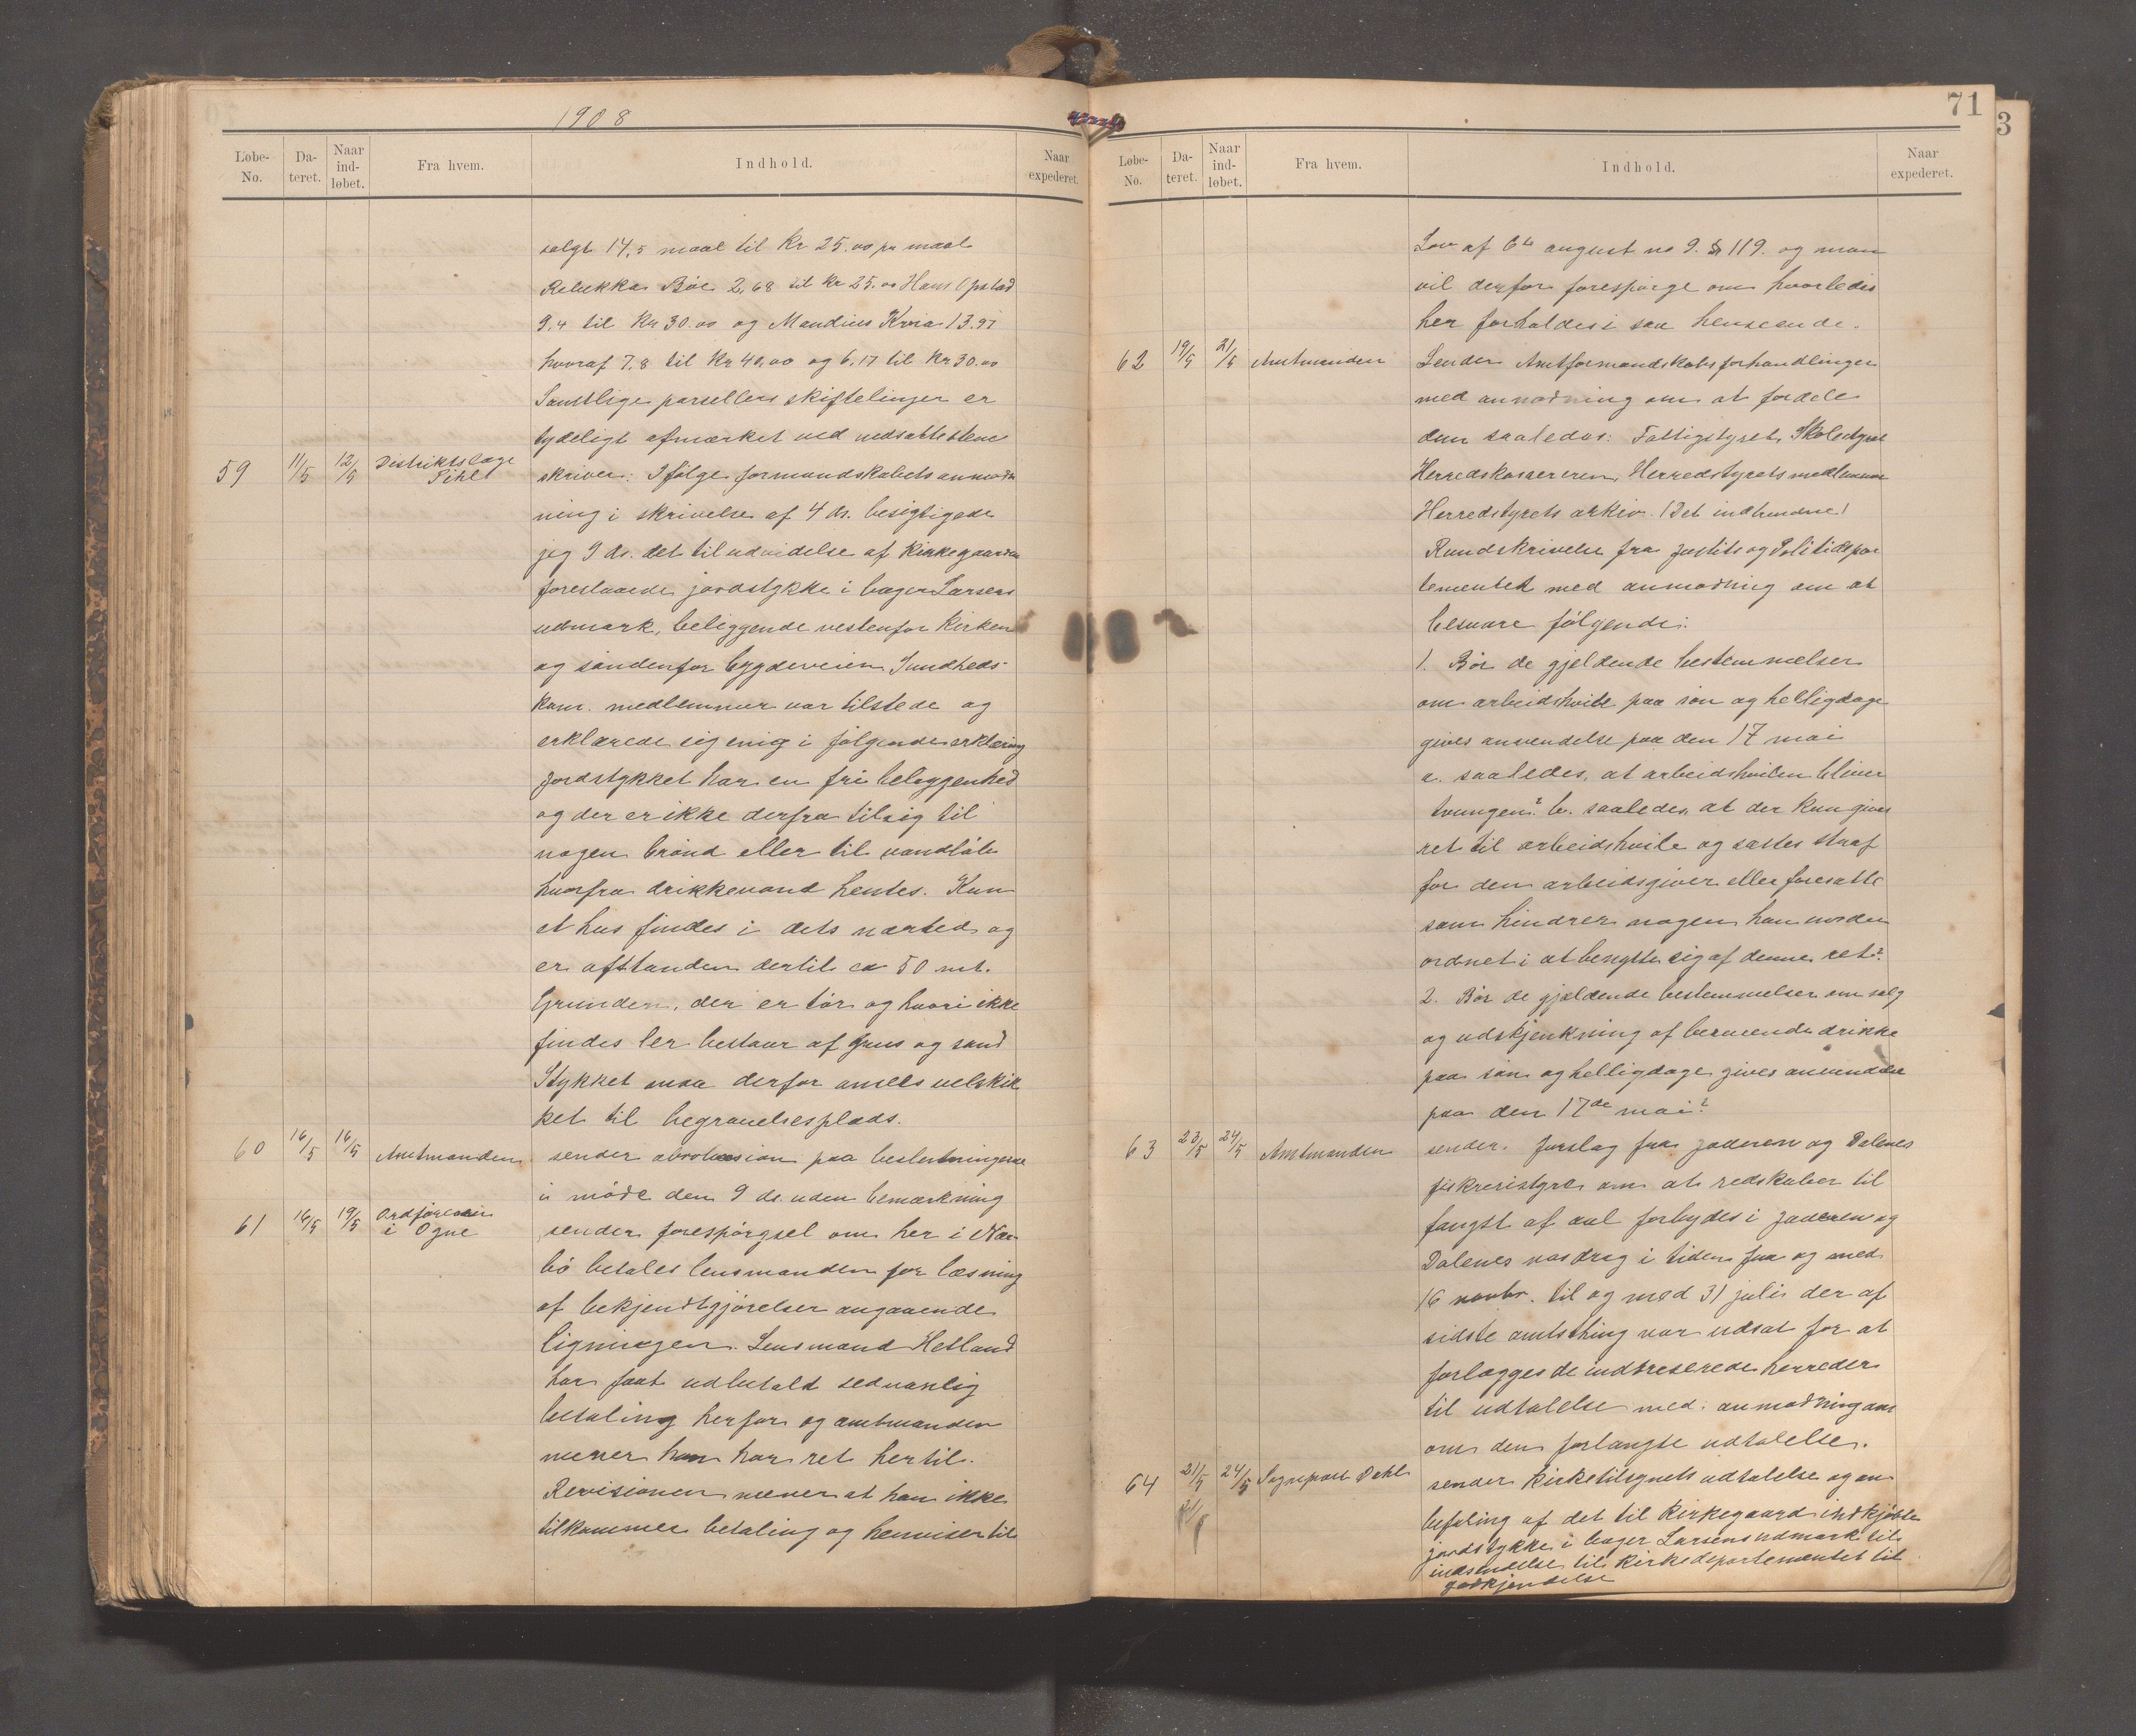 1908
Løbe-No. Da-teret. Naar ind-løbet. Fra hvem. Indhold. Naar expederet.
solgt 14,5 maal til Kr 25.00 pr maal
Rebekka Böe 2,68 til Kr 25.00 Hans Opstad
9,4 til Kr 30.00 og Maudius Kvia 13.97
hvoraf 7,8 til Kr 40,00 og 6,17 til Kr 30.00
Samtlige parsellers skiftelinjer er
tydeligt afmærket ved nedsatte stene
59 11/5 12/5 Distriktslæge Pihl skriver: Ifølge formandskabets anmod
ning i skrivelse af 4 ds. besigtigede
jeg 9 ds. det til udvidelse af Kirkegaarden
foreslaaede jordstykke i bager Larsens
udmark, beliggende vestenfor Kirken
og søndenfor bygdeveien Sundheds-
kom. medlemmer var tilstede og
erklærede sig enig i følgende erklæring
Jordstykket har en fri beliggenhed
og der er ikke derfra tilsig til
nogen brønd eller til vandløb
hvorfra drikkevand hentes. Kun
et hus findes i dets nærhed og
er afstanden dertil ca 50 mt.
Grunden, der er tør og hvori ikke
findes ler bestaar af grus og sand
Stykket maa derfor ansees velskik
ket til begravelsesplads.
60 16/5 16/5 Amtmanden sender paa beslutningerne
i møde den 9 ds. uden bemærkning
61 16/5 19/5 Ordføreren i Ogne sender forespørgsel om her i Nær
bø betales lensmanden for læsning
af bekjendtgjørelser angaaende
ligningen. Lensmand Hetland
har faat udbetalt sedvanlig
betaling herfor og amtmanden
mener han har ret hertil.
Revisionen mener at han ikke
tilkommer betaling og henviser til
71
3
Løbe-No. Da-teret. Naar ind-løbet. Fra hvem. Indhold. Naar expederet.
Lov af 6te august no 9. § 119. og man
vil derfor forespørge om hvorledes
her forholdes i saa henseende.
62 19/5 21/5 Amtmanden Sender Amtformandskabsforhandlinger
med anmodning om at fordele
dem saaledes: Fattigstyret, Skolestyret
Herredskassereren, Herredstyrets medlemmer
Herredstyrets arkiv. (Det indbundne)
Rundskrivelse fra Justits og Politidepar
tementet med anmodning om at
besvare følgende:
1. Bør de gjeldende bestemmelser
om arbeidshvile paa søn og helligdage
gives anvendelse paa den 17 mai
a. saaledes, at arbeidshvilen bliver
tvungen? b. saaledes, at der kun gives
ret til arbeidshvile og sættes straf
for den arbeidsgiver eller foresatte
som hindrer nogen ham under
ordnet i at benytte sig af denne ret?
2. Bør de gjældende bestemmelser om salg
og udskjenkning af berusende drikke
paa søn og helligdage gives anvendelse
paa den 17de mai?
63 23/5 24/5 Amtmanden sender forslag fra Jæderen og Dalenes
fiskeristyre om at redskaber til
fangst af aal forbydes i Jæderen og
Dalenes vasdrag i tiden fra og med
16 novbr. til og med 31 juli der af
sidste amtsthing var udsat for at
forlægges de indtreserede herreder
til udtalelse med anmodning om
om den forlangte udtalelse.
64 21/5 24/5 Sogneprest Dahl sender Kirketilsynets udtalelse og an
befaling af det til Kirkegaard indkjøbte
jordstykke i bager Larsens udmark til
indsendelse til Kirkedepartementet til
godkjendelse